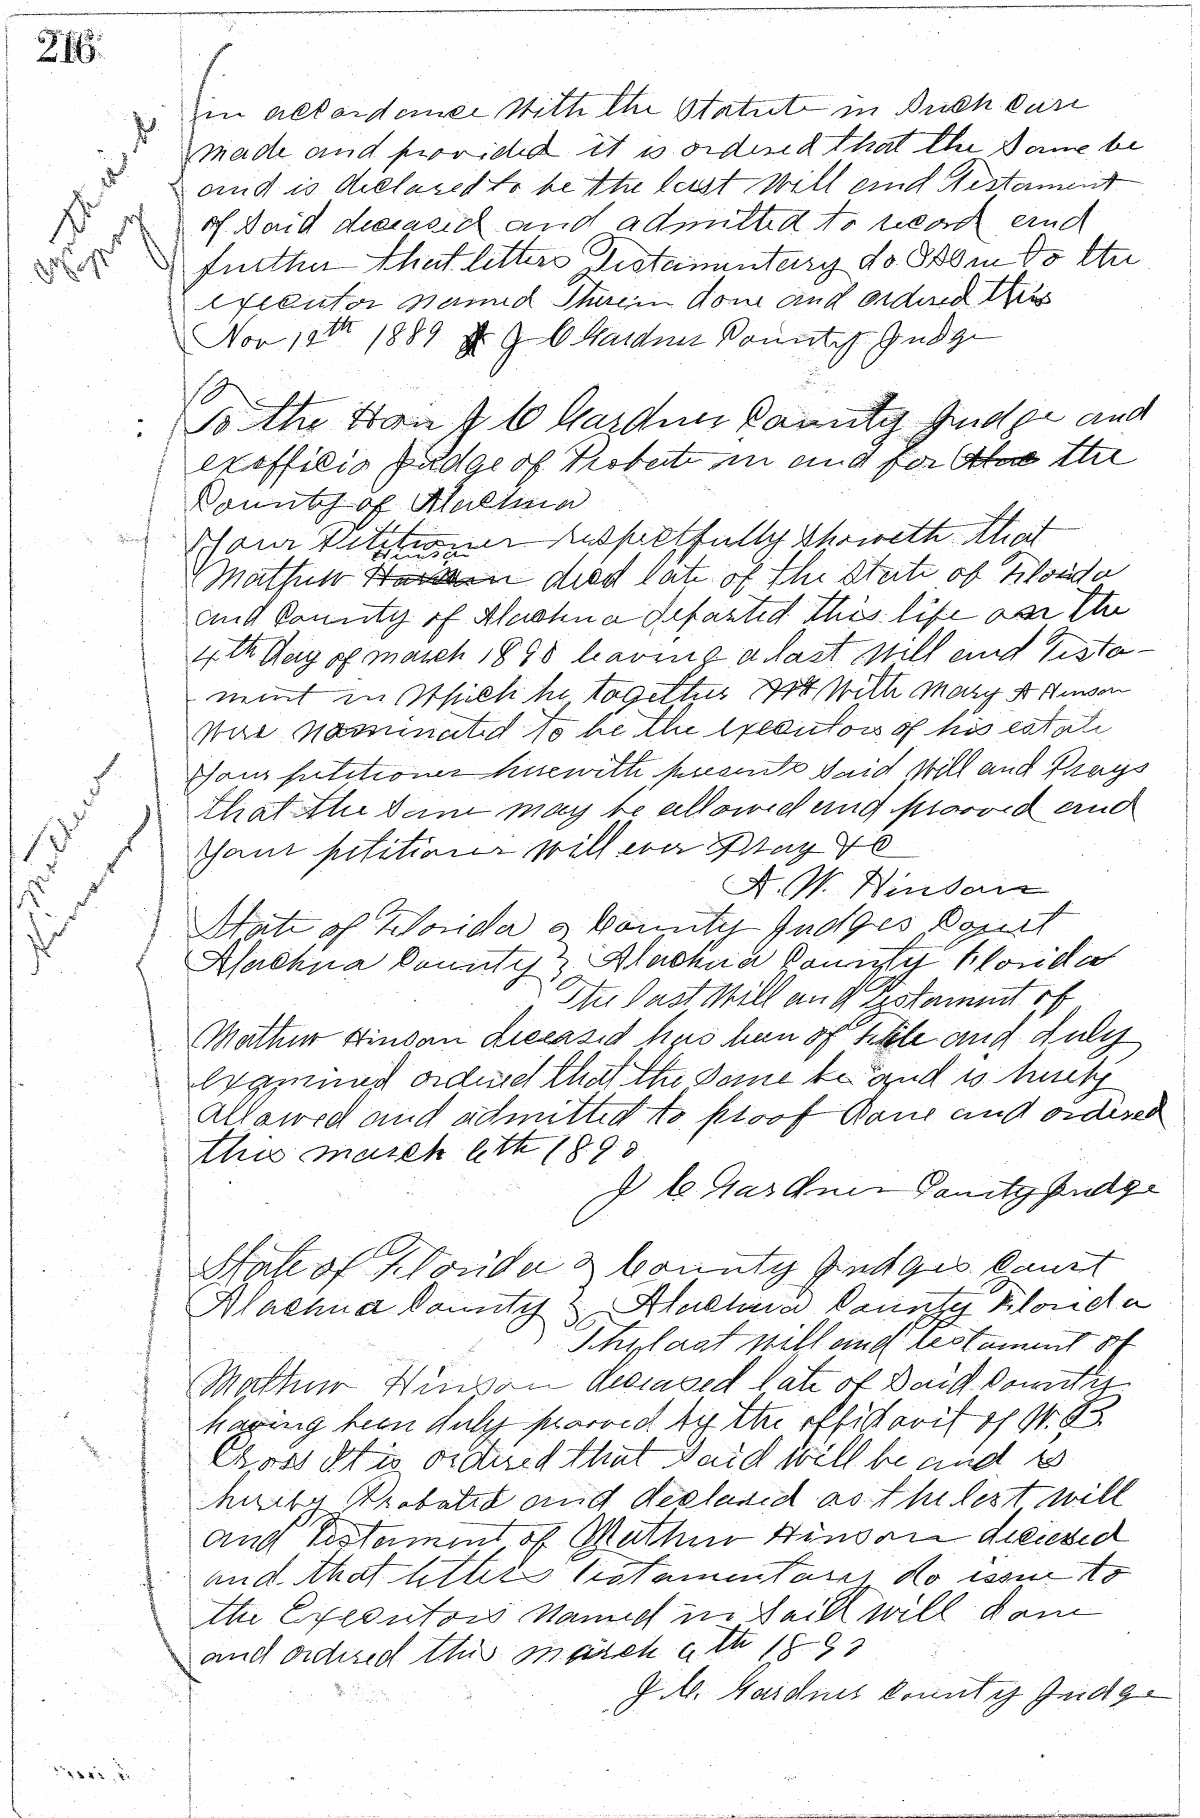 216
in accordance With the Statute in Such Case
made and provided it is ordered that the Same be
and is declared to be the last Will and Testament
of Said deceased and admitted to record and
further that letters Testamentary do Issue to the
executor named Therein done and ordered this
Nov 12th 1889 J C Gardner County Judge
To the Hon J C Gardner County Judge and
exofficio Judge of Probate in and for the
County of Alachua
Your Petitioner respectfully Showeth that
Hinson
Mathew died late of the State of Florida
and County of Alachua departed this life on the
4th day of March 1890 leaving a last Will and Testa-
ment in Which he together With Mary A Hinson
Were nominated to be the executors of his estate
Your petitioner herewith presents Said Will and Prays
that the Same may be allowed and prooved and
Your petitioner will ever Pray &C
A. W. Hinson
State of Florida } County Judges Court
Alachua County } Alachua County Florida
The last Will and Testament of
Mathew Hinson deceased has been of File and duly
examined ordered that the Same be and is hereby
allowed and admitted to proof Done and ordered
this March 6th 1890
J C Gardner County Judge
State of Florida } County Judges Court
Alachua County } Alachua County Florida
The last will and testament of
Mathew Hinson deceased late of Said County
having been duly prooved by the affidavit of W. B.
Cross It is ordered that Said will be and is
hereby Probated and declared as the last will
and Testament of Mathew Hinson deceased
and that letters Testamentary do issue to
the Executors Named in Said will done
and ordered this March 6th 1890
J. C. Gardner County Judge
Mathew
Hinson